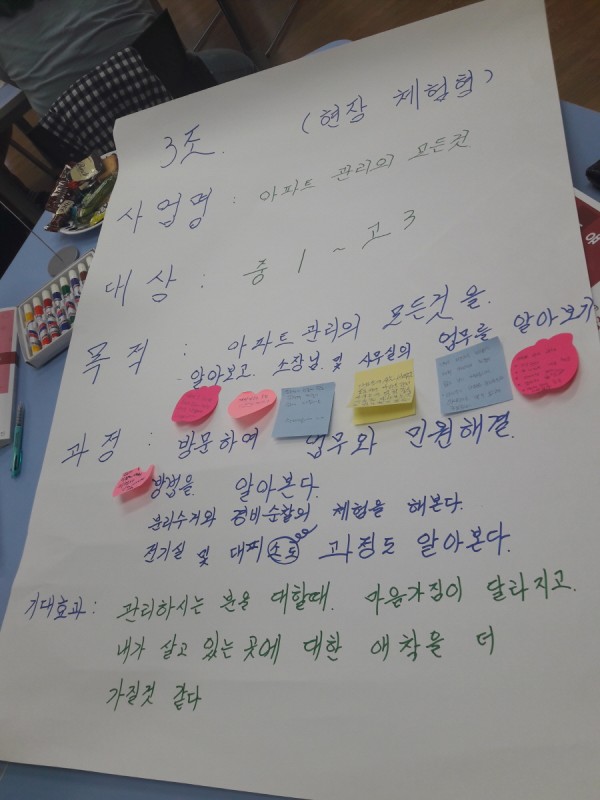 3조. (현장 체험형)
사업명 : 아파트 관리의 모든것
대상 : 중 1 ~ 고 3
목적 : 아파트관리의 모든것을.
알아보고. 소장님 및 사무실의 업무를 알아보기
과정 : 방문하여 업무와 민원해결.
방법을 알아본다.
분리수거와 경비순찰의 체험을 해본다.
전기실 및 대피소로 과정도 알아본다.
기대효과 : 관리하시는 분을 대할때. 마음가짐이 달라지고.
내가 살고 있는 곳에 대한 애착을 더
가질것 같다